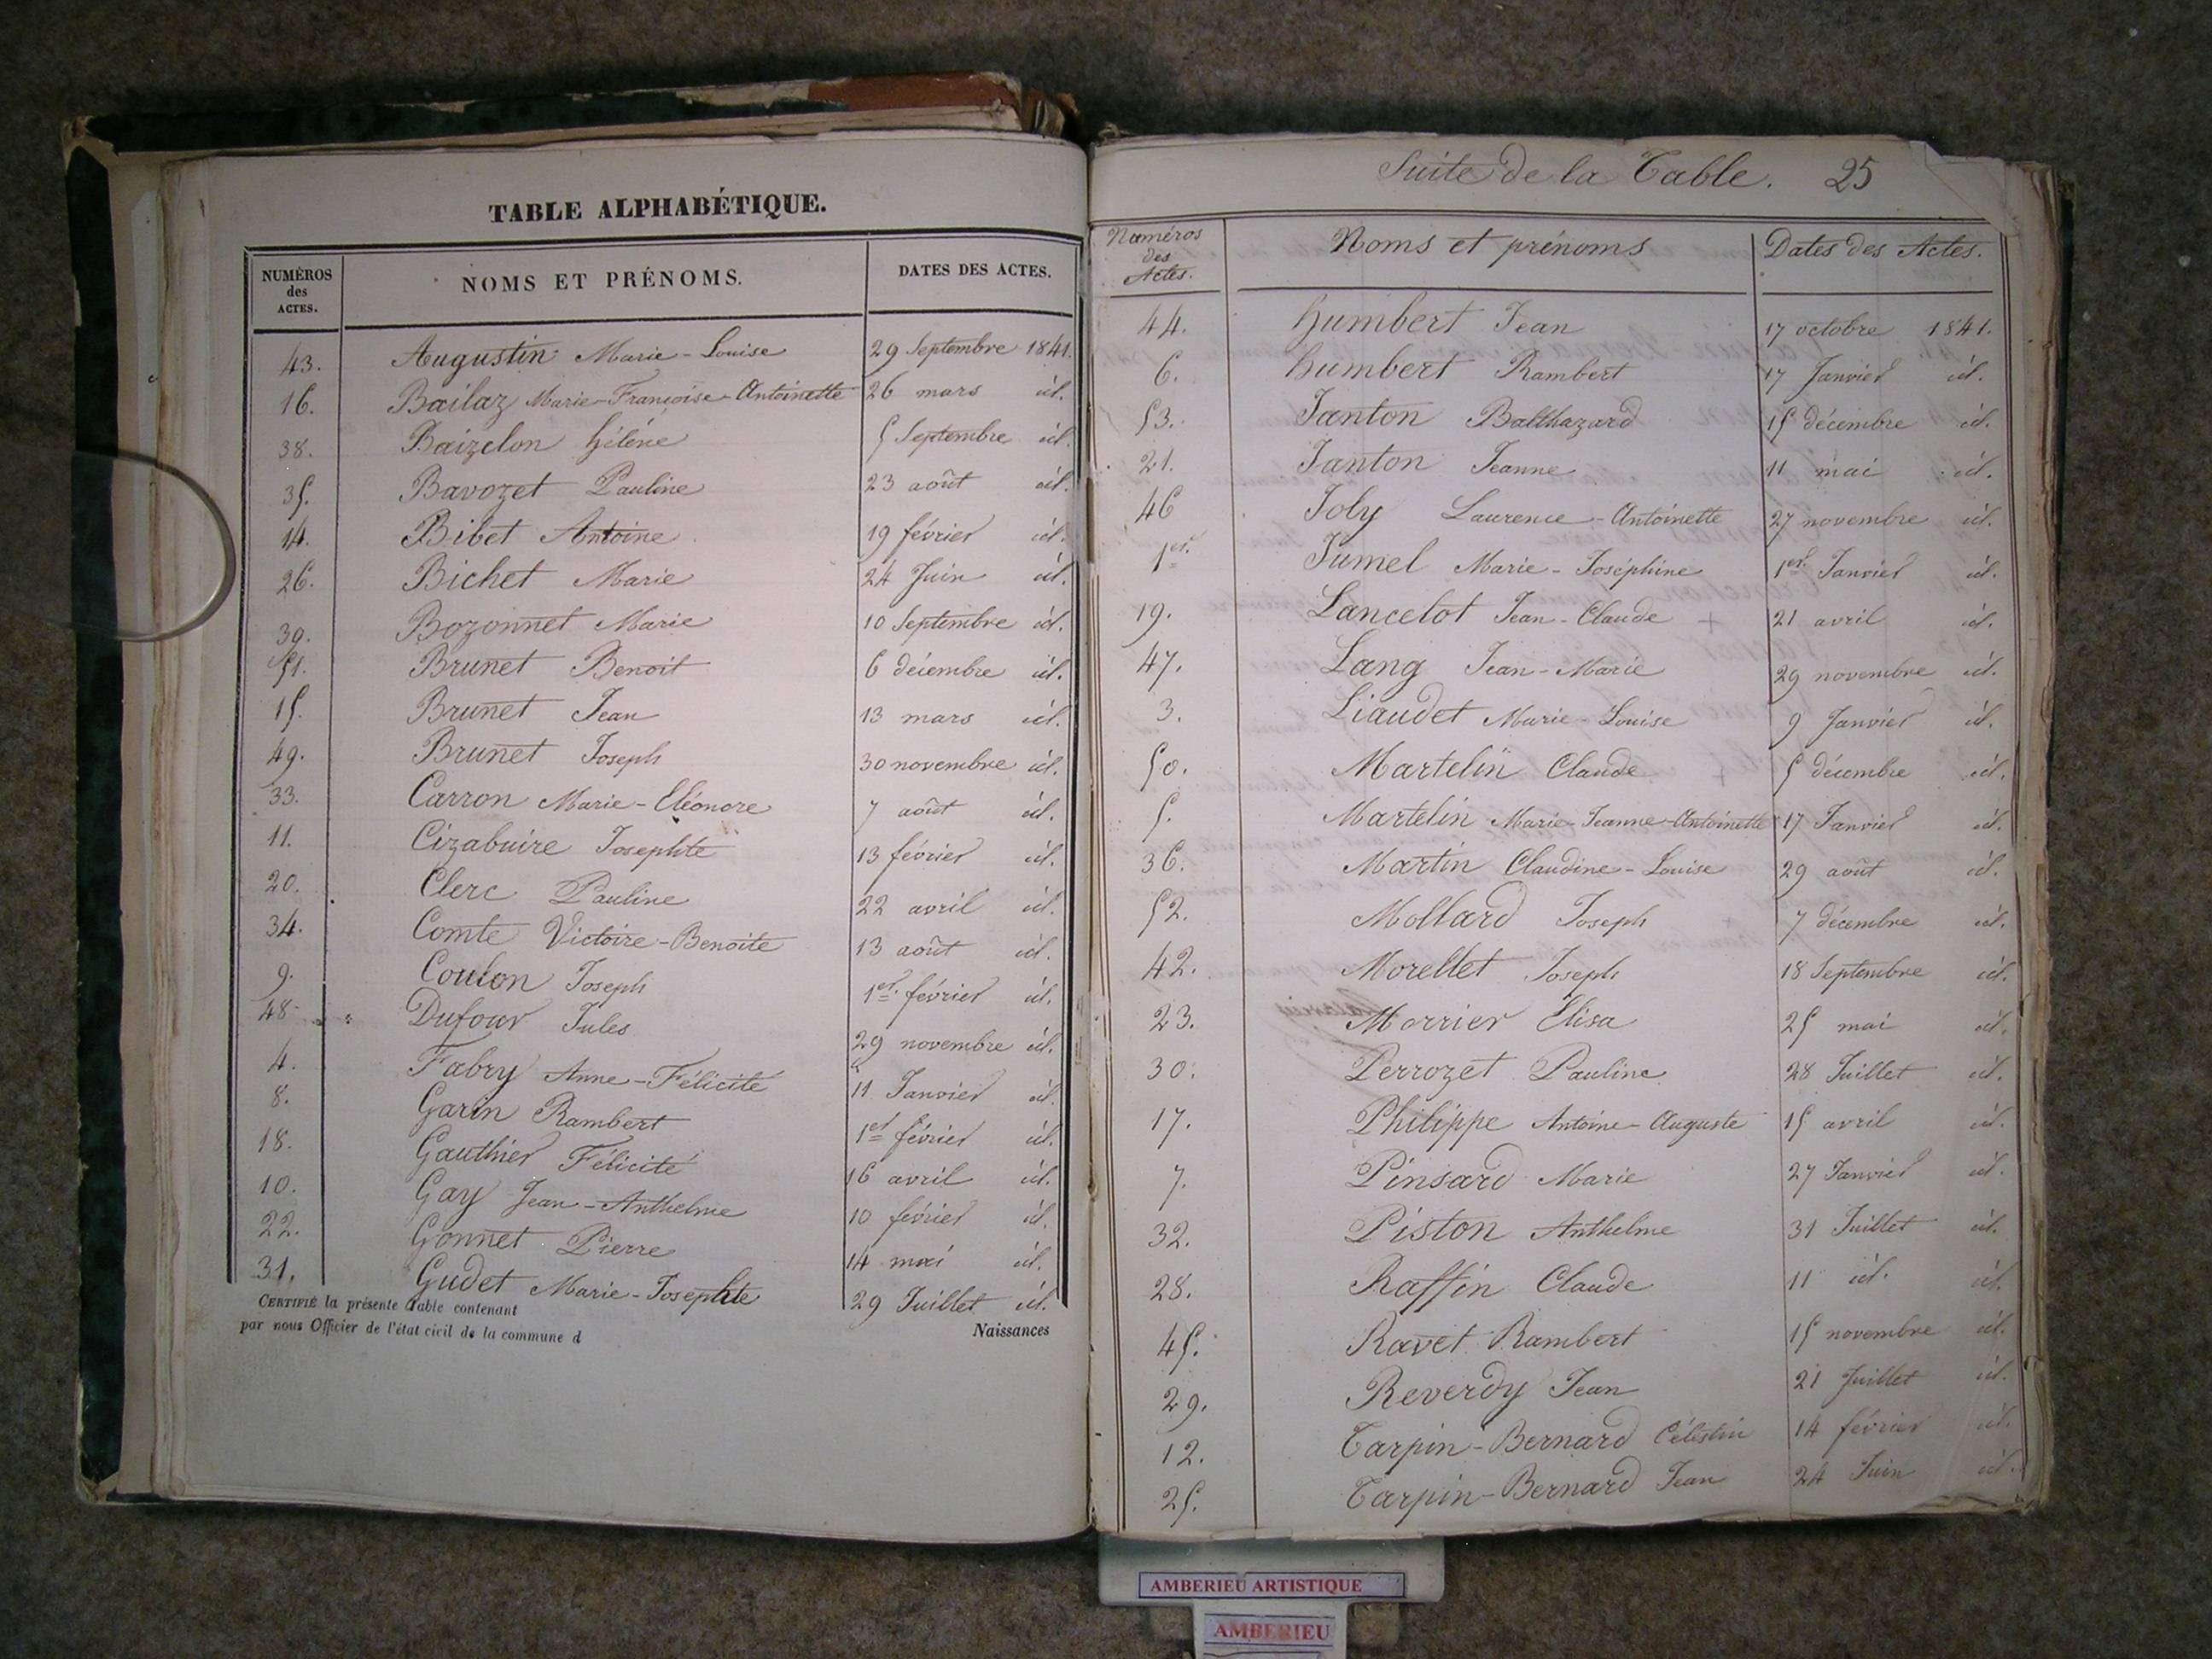 TABLE ALPHABÉTIQUE.
NUMÉROS des ACTES. NOMS ET PRÉNOMS. DATES DES ACTES.
43. Augustin Marie-Louise 29 Septembre 1841.
16. Bailaz Marie-Françoise-Antoinette 26 mars id.
38. Baizelon Héléne 5 Septembre id.
35. Bavozet Pauline 23 août id.
14. Bibet Antoine 19 février id.
26. Bichet Marie 24 Juin id.
39. Bozonnet Marie 10 Septembre id.
51. Brunet Benoit 6 décembre id.
15. Brunet Jean 13 mars id.
49. Brunet Joseph 30 novembre id.
33. Carron Marie-Eléonore 7 août id.
11. Cizabuire Josephte 13 février id.
20. Clerc Pauline 22 avril id.
34. Comte Victoire-Benoite 13 août id.
9. Coulon Joseph 1er. février id.
48. Dufour Jules 29 novembre id.
4. Fabry Anne-Félicité 11 Janvier id.
8. Garin Rambert 1er février id.
18. Gauthier Félicité 16 avril id.
10. Gay Jean-Anthelme 10 février id.
22. Gonnet Pierre 14 mai id.
31. Gudet Marie-Josephte 29 Juillet id.
CERTIFIÉ la présente Table contenant Naissances
par nous Officier de l'état civil de la commune d
Suite de la Table. 25
Numéros des Actes. Noms et prénoms Dates des Actes.
44. Humbert Jean 17 octobre 1841.
6. Humbert Rambert 17 Janvier id.
53. Janton Balthazard 15 décembre id.
21. Janton Jeanne 11 mai id.
46 Joly Laurence-Antoinette 27 novembre id.
1er. Jumel Marie-Joséphine 1er. Janvier id.
19. Lancelot Jean-Claude + 21 avril id.
47. Lang Jean-Marie 29 novembre id.
3. Liaudet Marie-Louise 9 Janvier id.
50. Martelin Claude 5 décembre id.
5. Martelin Marie-Jeanne-Antoinette 17 Janvier id.
36. Martin Claudine-Louise 29 août id.
52. Mollard Joseph 7 décembre id.
42. Morellet Joseph 18 Septembre id.
23. Morrier Elisa 25 mai id.
30. Perrozet Pauline 28 Juillet id.
17. Philippe Antoine-Auguste 15 avril id.
7. Pinsard Marie 27 Janvier id.
32. Piston Anthelme 31 Juillet id.
28. Raffin Claude 11 id. id.
45. Ravet Rambert 15 novembre id.
29. Reverdy Jean 21 Juillet id.
12. Tarpin-Bernard Célestin 14 février id.
25. Tarpin-Bernard Jean 24 Juin id.
AMBERIEU ARTISTIQUE
AMBERIEU